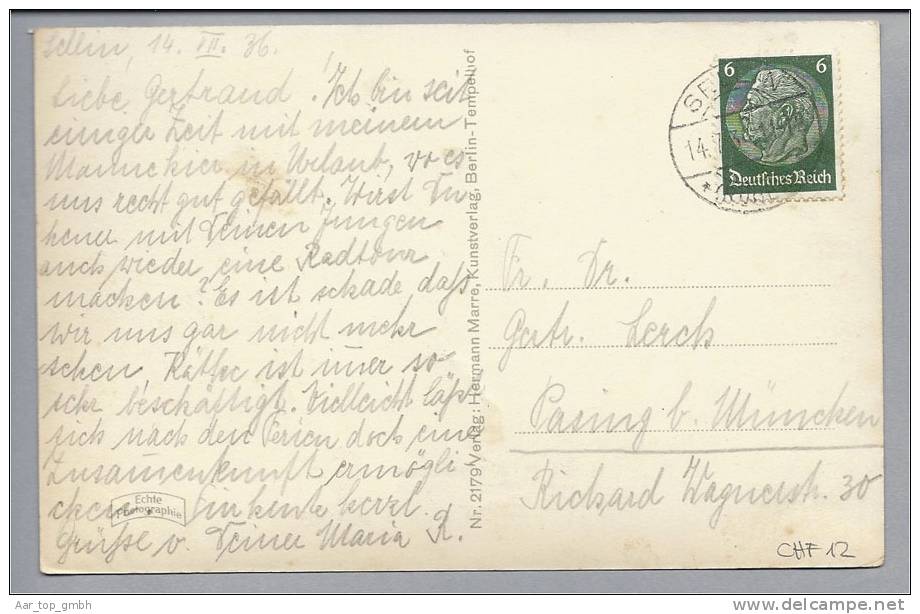 Sellin, 14. VII. 36.
Liebe Gertraud! Ich bin seit
einiger Zeit mit meinem
Manne hier in Urlaub, wo es
uns recht gut gefällt. Wirst Du
heuer mit Deinen Jungen
auch wieder eine Radtour
machen? Es ist schade daß
wir uns gar nicht mehr
sehen, Käthe ist immer so
sehr beschäftigt. Vielleicht läßt
sich nach den Ferien doch eine
Zusammenkunft ermögli
chen. Für heute herzl.
Grüße v. Deiner Maria R.
Echte
Photographie
Nr. 2179 Verlag: Hermann Marre, Kunstverlag, Berlin-Tempelhof
6 6
Deutsches Reich
14.7
Fr. Dr.
Gertr. Lerch
Pasing b. München
Richard Wagnerstr. 30
CHF 12
Aar_top_gmbh
delcampe.net